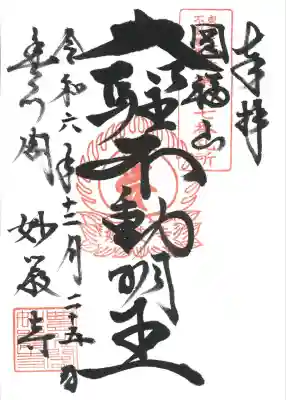 奉拝
圓福山
大聖不動明王
令和六年十二月二十五日
豊川閣
妙厳寺